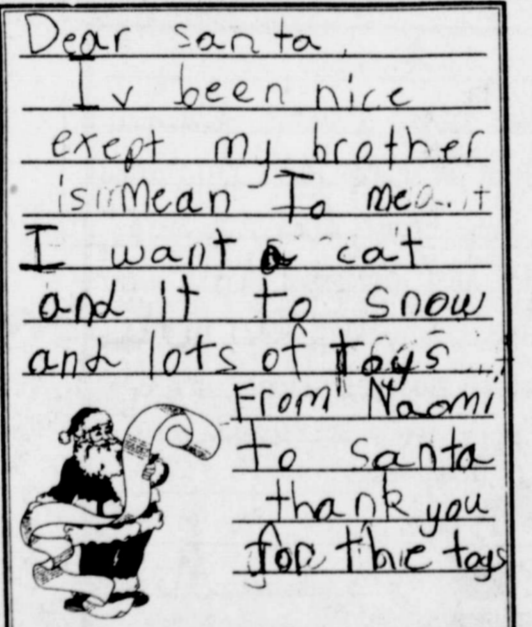 Dear santa,
Iv been nice
exept my brother
is mean To me
I want a cat
and it to snow
and lots of toys
From Naomi
to santa
thank you
for thie toys